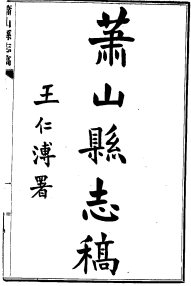 蕭山縣志稿
王仁溥署
蕭山縣志稿